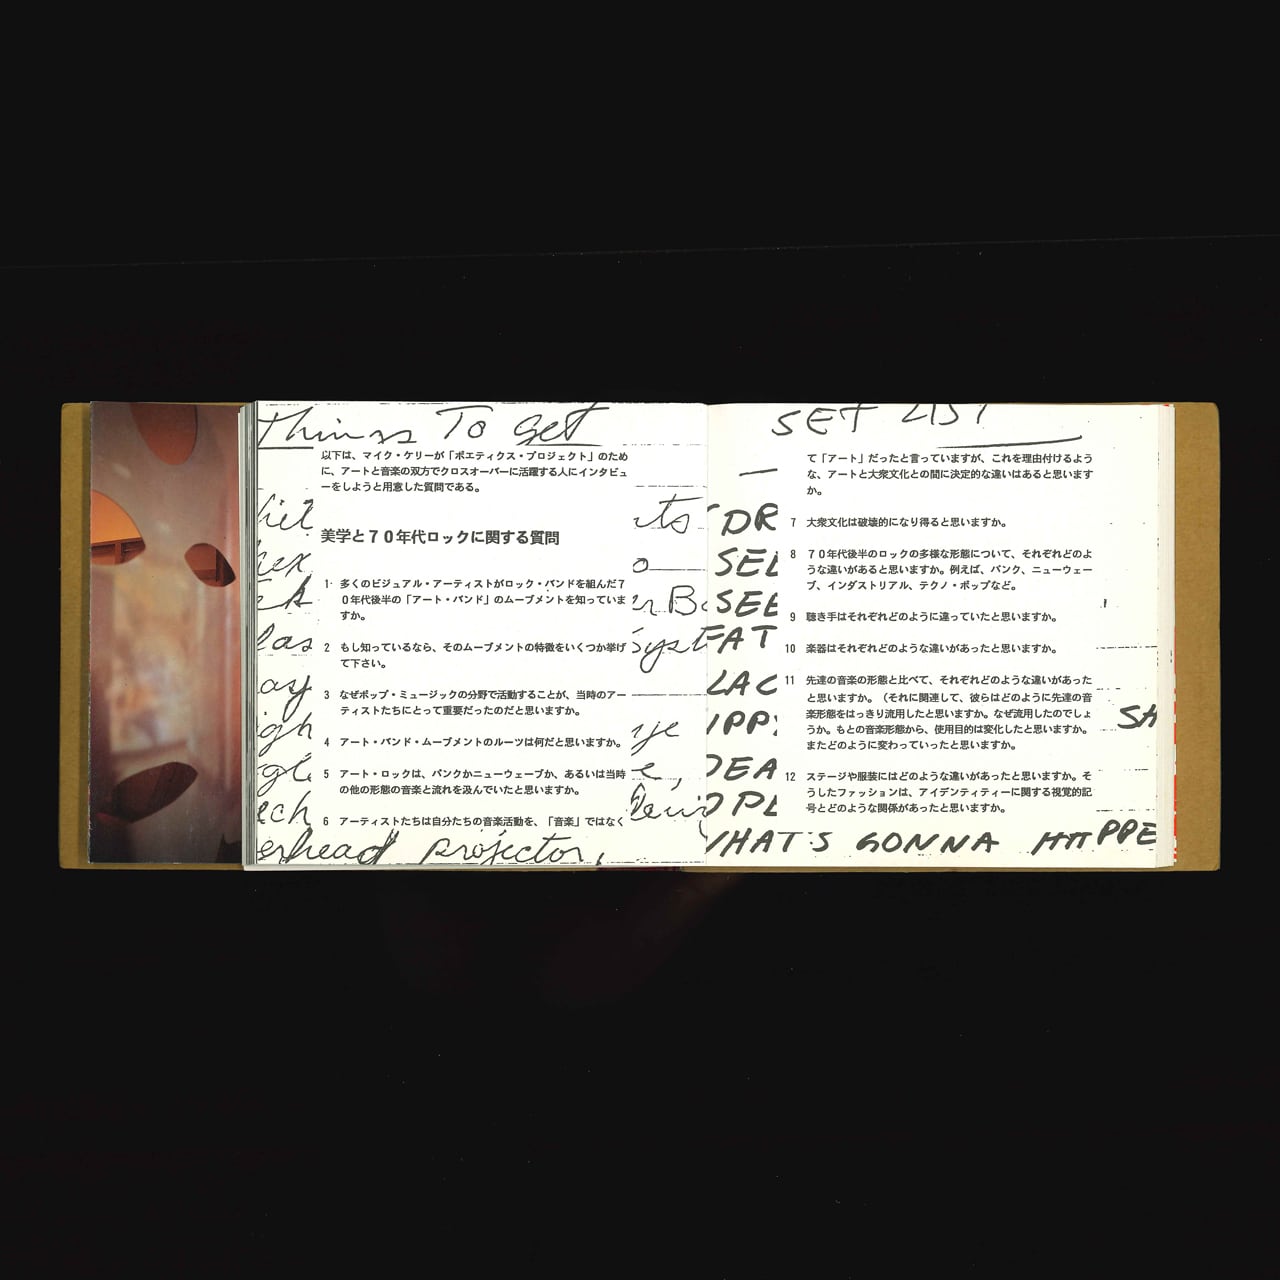 Things To get
以下は、マイク・ケリーが「ポエティクス・プロジェクト」のため
に、アートと音楽の双方でクロスオーバーに活躍する人にインタビュ
ーをしようと用意した質問である。
美学と７０年代ロックに関する質問
1 多くのビジュアル・アーティストがロック・バンドを組んだ７
０年代後半の「アート・バンド」のムーブメントを知っていま
すか。
2 もし知っているなら、そのムーブメントの特徴をいくつか挙げ
て下さい。
3 なぜポップ・ミュージックの分野で活動することが、当時のアー
ティストたちにとって重要だったのだと思いますか。
4 アート・バンド・ムーブメントのルーツは何だと思いますか。
5 アート・ロックは、パンクかニューウェーブか、あるいは当時
の他の形態の音楽と流れを汲んでいたと思いますか。
6 アーティストたちは自分たちの音楽活動を、「音楽」ではなく
erhead projector,
SET LIST
て「アート」だったと言っていますが、これを理由付けるよう
な、アートと大衆文化との間に決定的な違いはあると思います
か。
7 大衆文化は破壊的になり得ると思いますか。
8 ７０年代後半のロックの多様な形態について、それぞれどのよ
うな違いがあると思いますか。例えば、パンク、ニューウェー
ブ、インダストリアル、テクノ・ポップなど。
9 聴き手はそれぞれどのように違っていたと思いますか。
10 楽器はそれぞれどのような違いがあったと思いますか。
11 先達の音楽の形態と比べて、それぞれどのような違いがあった
と思いますか。（それに関連して、彼らはどのように先達の音
楽形態をはっきり流用したと思いますか。なぜ流用したのでしょ
うか。もとの音楽形態から、使用目的は変化したと思いますか。
またどのように変わっていったと思いますか。
12 ステージや服装にはどのような違いがあったと思いますか。そ
うしたファッションは、アイデンティティーに関する視覚的記
号とどのような関係があったと思いますか。
DR
SEL
SEE
FAT
LAC
IPPY
DEA
OPL
SH
WHAT'S GONNA HAPPE